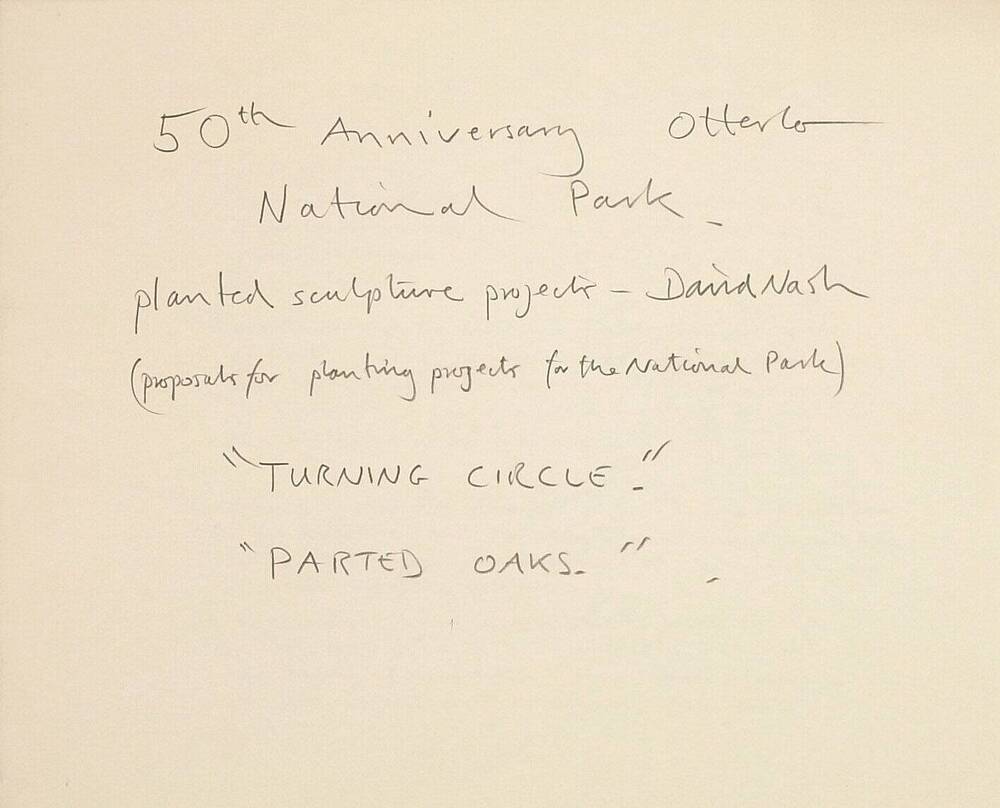 50th Anniversary Otterlo
National Park -
planted sculpture projects - David Nash
(proposals for planting projects for the National Park)
"TURNING CIRCLE."
"PARTED OAKS." -